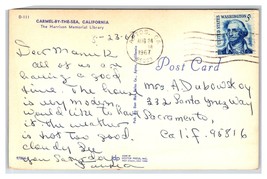 S-111
CARMEL-BY-THE-SEA, CALIFORNIA
The Harrison Memorial Library
8-23-67
1967
WASHINGTON
5¢
Dear Mama &
all of us are
having a good
time. The house
is very modern
would like to have
it the weather
is not too good
cloudy
Post Card
Mrs A Dubowskoy
332 Santa Ynez Way
Sacramento,
Calif. 96816